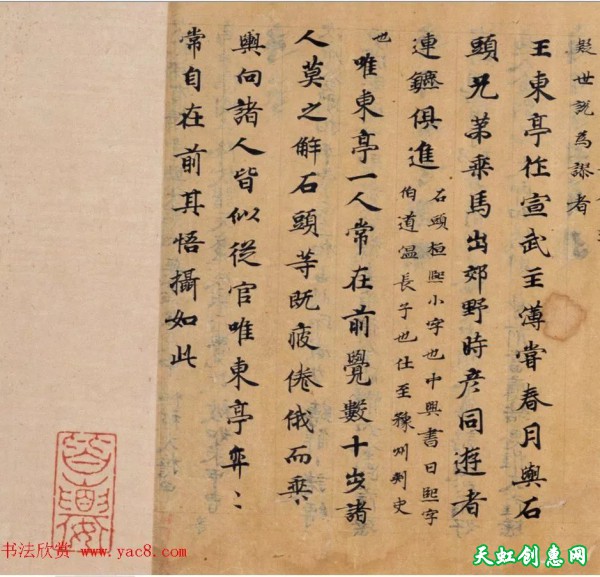 疑世說為謬者
王東亭作宣武主薄嘗春月與石
頭兄弟乘馬出郊野時彥同遊者
連鑣俱進
石頭桓熙小字也中興書曰熙字
伯道溫長子也仕至豫州刺史
也
唯東亭一人常在前覺數十步諸
人莫之解石頭等既疲倦俄而乘
輿向諸人皆似從官唯東亭弈〻
常自在前其悟攝如此
书法欣赏 www.yac8.com
天虹创意网